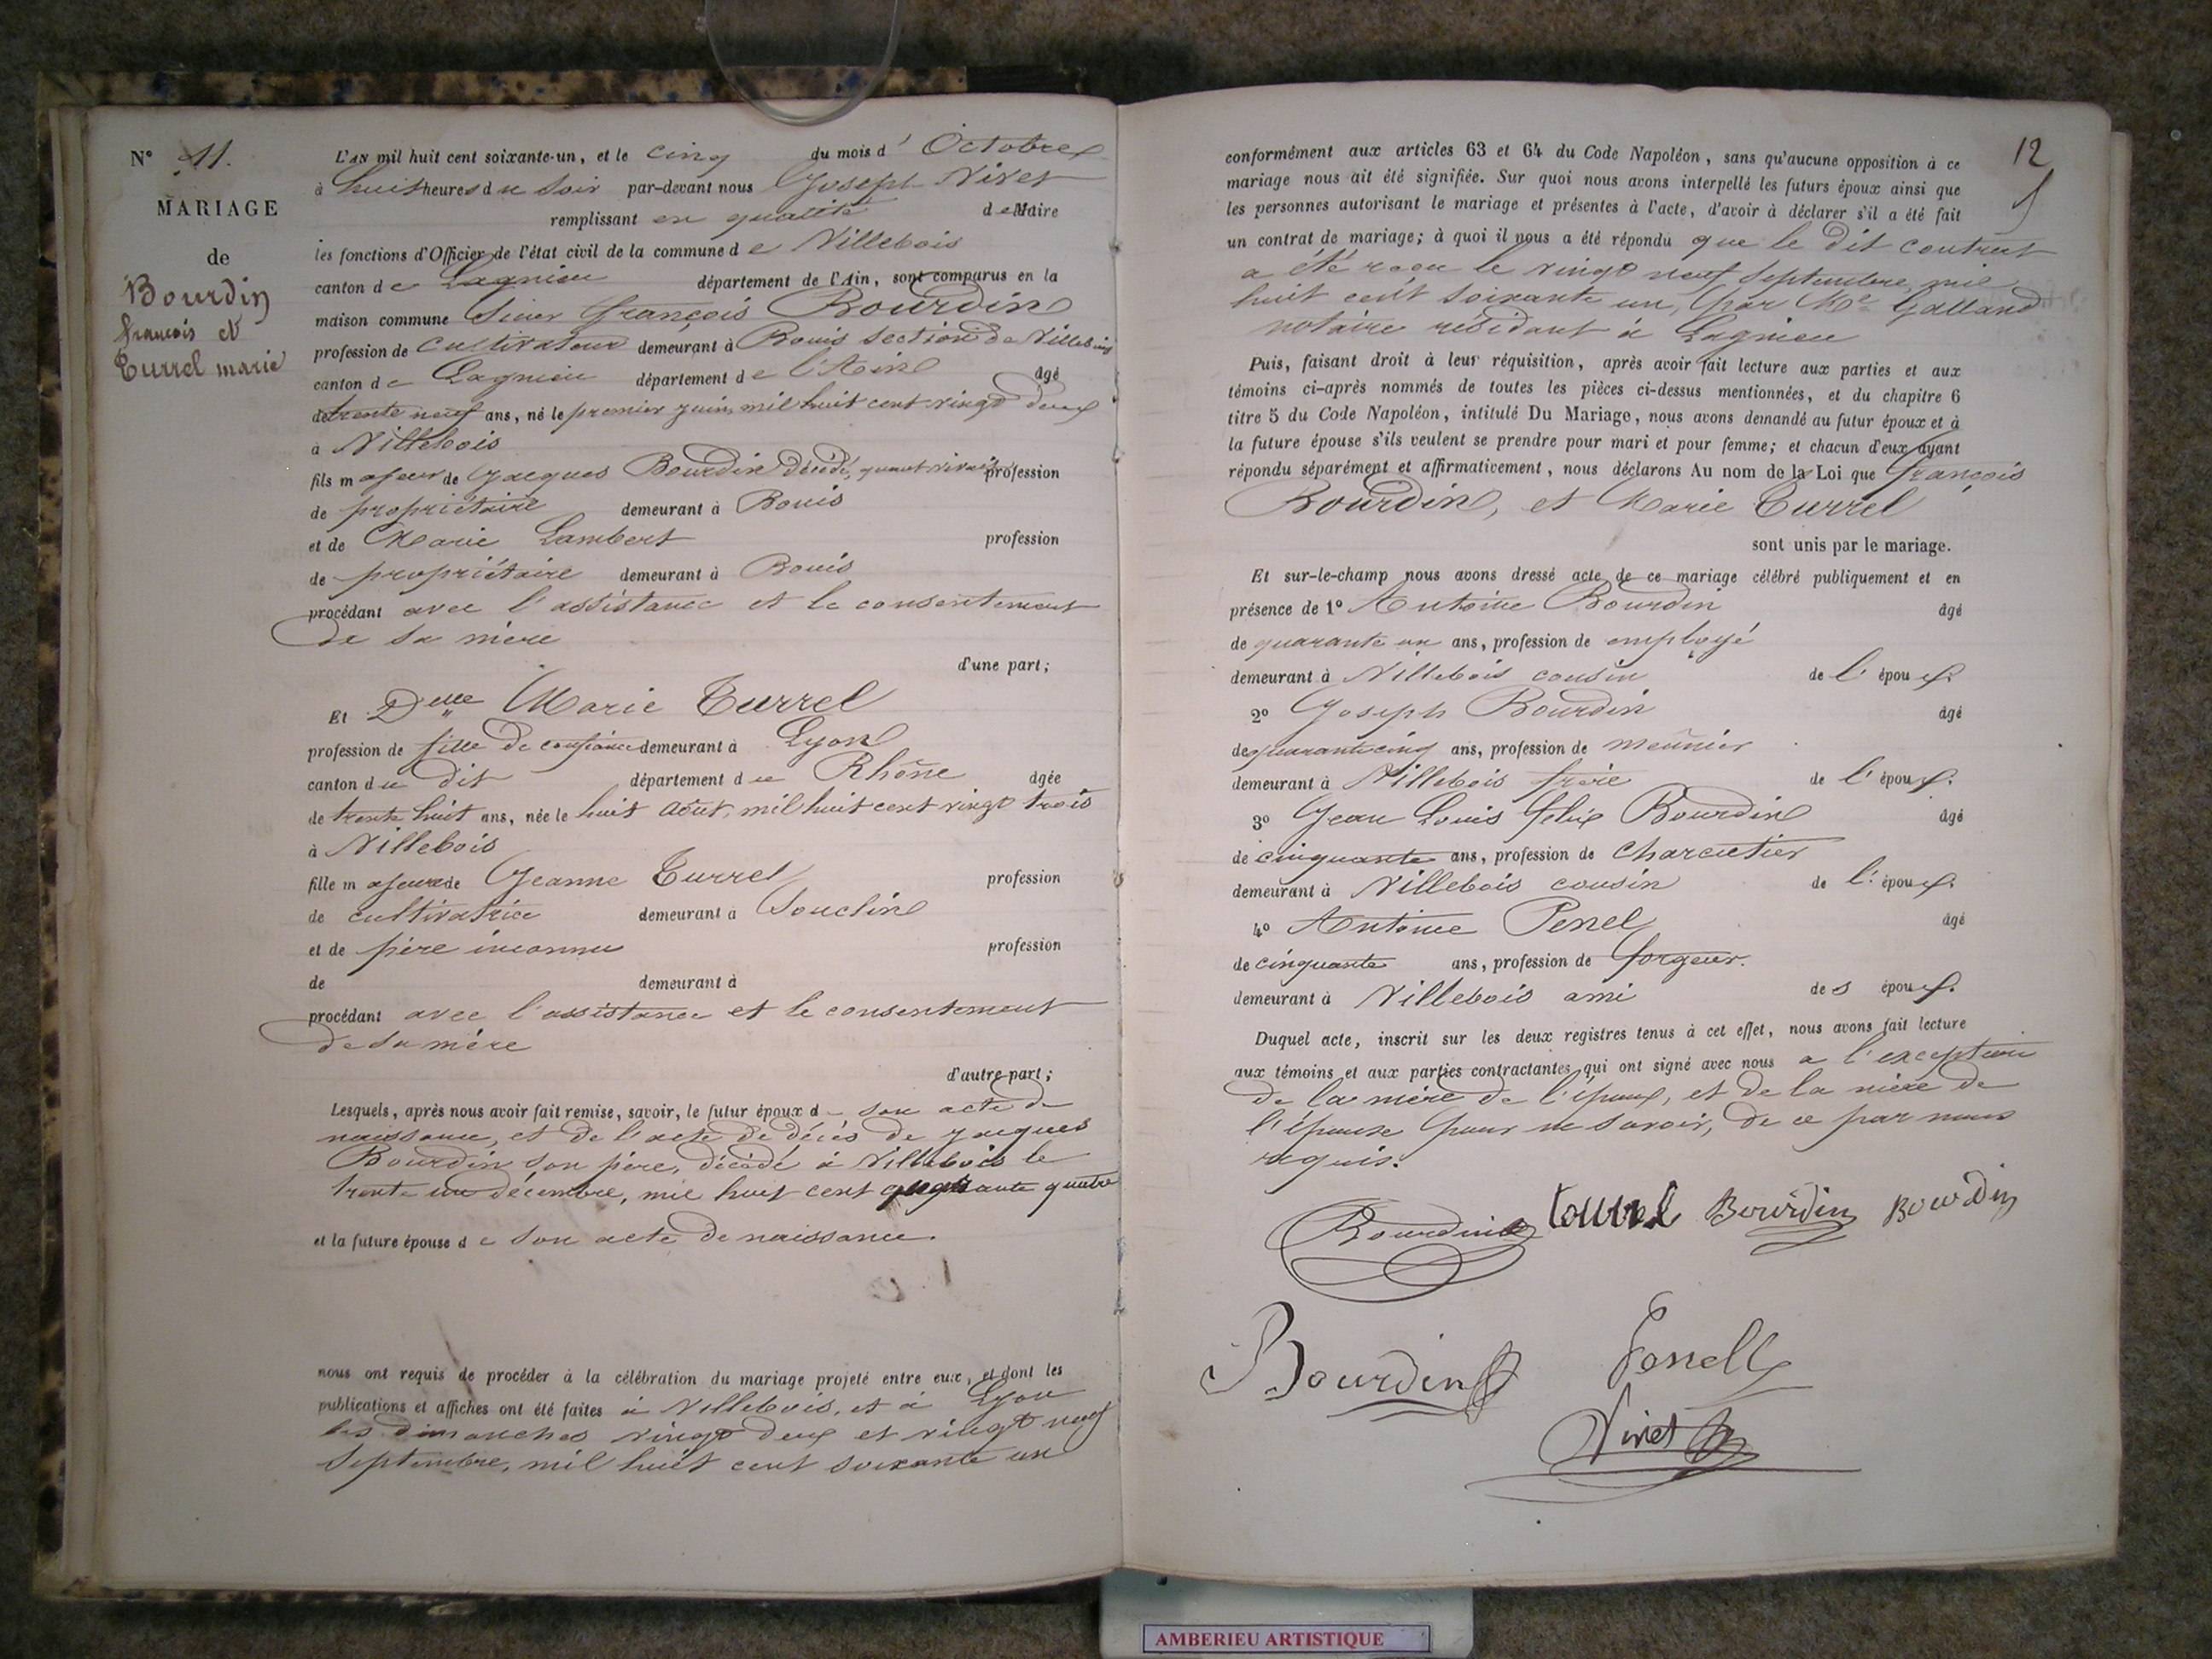 N° 11.
MARIAGE
de
Bourdin
françois et
Turrel marie
L'AN mil huit cent soixante-un, et le cinq du mois d'Octobre
à huit heures du soir par-devant nous Joseph Vivet
remplissant en qualité de Maire
les fonctions d'Officier de l'état civil de la commune de Villebois
canton de Lagnieu département de l'Ain, sont comparus en la
maison commune Sieur François Bourdin
profession de cultivateur demeurant à Bouis section de Villebois
canton de Lagnieu département de l'Ain âgé
de trente neuf ans, né le premier juin, mil huit cent vingt deux
à Villebois
fils majeur de Jacques Bourdin décédé, quant vivait profession
de propriétaire demeurant à Bouis
et de Marie Lambert profession
de propriétaire demeurant à Bouis
procédant avec l'assistance et le consentement
de sa mère
d'une part;
Et Delle Marie Turrel
profession de fille de confiance demeurant à Lyon
canton du dit département du Rhône âgée
de trente huit ans, née le huit août, mil huit cent vingt trois
à Villebois
fille majeure de Jeanne Turrel profession
de cultivatrice demeurant à Souclin
et de père inconnu profession
de demeurant à
procédant avec l'assistance et le consentement
de sa mère
d'autre part;
Lesquels, après nous avoir fait remise, savoir, le futur époux de son acte de
naissance, et de l'acte de décès de Jacques
Bourdin son père, décédé à Villebois le
trente un décembre, mil huit cent quarante quatre
et la future épouse de son acte de naissance.
nous ont requis de procéder à la célébration du mariage projeté entre eux, et dont les
publications et affiches ont été faites à Villebois, et à Lyon
les dimanches vingt deux et vingt neuf
Septembre, mil huit cent soixante un
12
conformément aux articles 63 et 64 du Code Napoléon, sans qu'aucune opposition à ce
mariage nous ait été signifiée. Sur quoi nous avons interpellé les futurs époux ainsi que
les personnes autorisant le mariage et présentes à l'acte, d'avoir à déclarer s'il a été fait
un contrat de mariage; à quoi il nous a été répondu que le dit contrat
a été reçu le vingt neuf Septembre, mil
huit cent soixante un, par Me Galland
notaire résidant à Lagnieu
Puis, faisant droit à leur réquisition, après avoir fait lecture aux parties et aux
témoins ci-après nommés de toutes les pièces ci-dessus mentionnées, et du chapitre 6
titre 5 du Code Napoléon, intitulé Du Mariage, nous avons demandé au futur époux et à
la future épouse s'ils veulent se prendre pour mari et pour femme; et chacun d'eux ayant
répondu séparément et affirmativement, nous déclarons Au nom de la Loi que François
Bourdin, et Marie Turrel
sont unis par le mariage.
Et sur-le-champ nous avons dressé acte de ce mariage célébré publiquement et en
présence de 1° Antoine Bourdin âgé
de quarante un ans, profession de employé
demeurant à Villebois cousin de l'époux.
2° Joseph Bourdin âgé
de quarante cinq ans, profession de meûnier
demeurant à Villebois frère de l'époux.
3° Jean Louis Felix Bourdin âgé
de cinquante ans, profession de charcutier
demeurant à Villebois cousin de l'époux.
4° Antoine Penel âgé
de cinquante ans, profession de forgeur.
demeurant à Villebois ami des époux.
Duquel acte, inscrit sur les deux registres tenus à cet effet, nous avons fait lecture
aux témoins et aux parties contractantes qui ont signé avec nous a l'exception
de la mère de l'époux, et de la mère de
l'épouse pour ne savoir, de ce par nous
requis.
Bourdin tourrel Bourdin Bourdin
Bourdin Penell
Vivet
AMBERIEU ARTISTIQUE